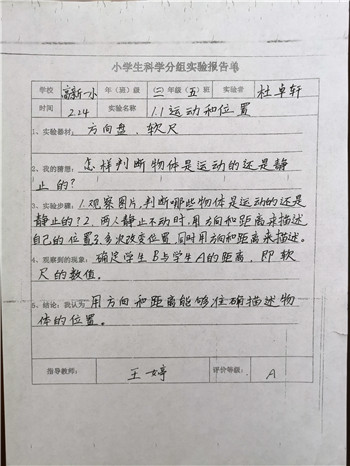 小学生科学分组实验报告单
学校 高新一小 年（班）级 （三）年级（五）班 实验者 杜卓轩
时间 2.24 实验名称 1.1运动和位置
1、实验器材： 方向盘、软尺
2、我的猜想： 怎样判断物体是运动的还是静
止的？
3、实验步骤：1.观察图片,判断哪些物体是运动的还是
静止的？2.两人静止不动时,用方向和距离来描述
自己的位置3.多次改变位置,同时用方向和距离来描述。
4、观察到的现象：确定学生B与学生A的距离，即软
尺的数值。
5、结论：我认为 用方向和距离能够准确描述物
体的位置。
指导教师： 王婷 评价等级： A